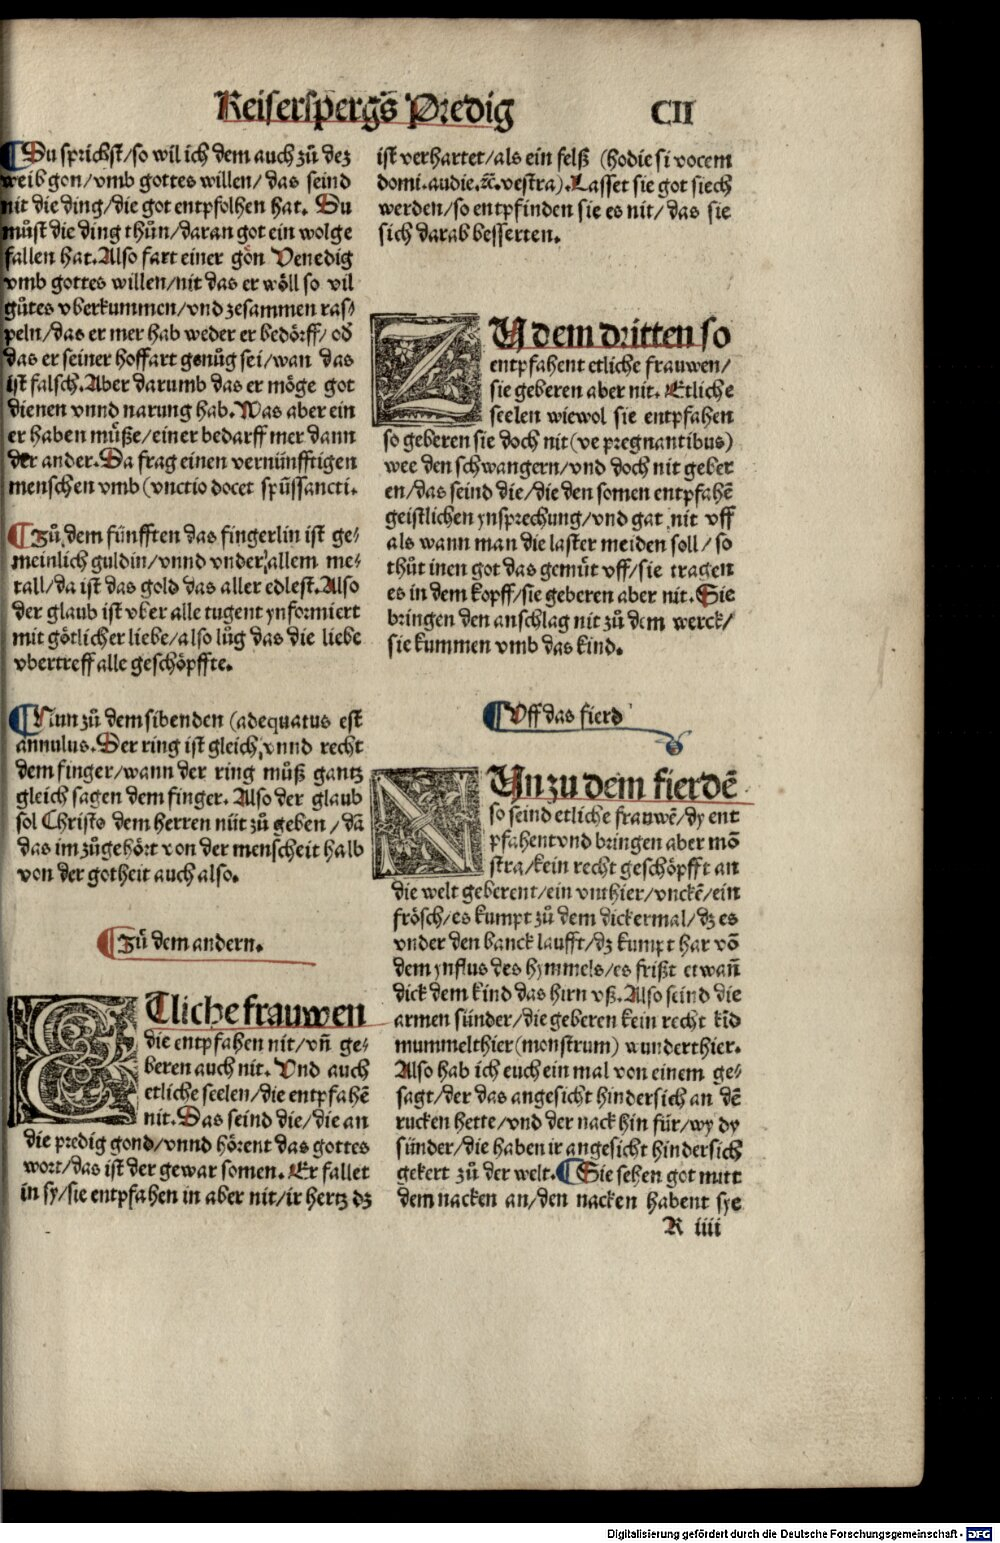 Keiserspergs̄ Predig CII
¶Du sprichst/so wil ich dem auch zů dez
weib gon/vmb gottes willen/das seind
nit die ding/die got entpfolhen hat. Du
můst die ding thůn/daran got ein wolge
fallen hat. Also fart einer gōn Venedig
vmb gottes willen/nit das er wöll so vil
gůtes vberkummen/vnd zesammen ras⸗
peln/das er mer hab weder er bedörff/ od̄
das er seiner hoffart genůg sei/wan das
ist falsch. Aber darumb das er möge got
dienen vnnd narung hab. Was aber ein
er haben můße/einer bedarff mer dann
der ander. Da frag einen vernünfftigen
menschen vmb (vnctio docet spūssancti.
¶Zů dem fünfften das fingerlin ist ge⸗
meinlich guldin/vnnd vnder allem me⸗
tall/da ist das gold das aller edlest. Also
der glaub ist vber alle tugent ynformiert
mit götlicher liebe/also lůg das die liebe
vbertreff alle geschöpffte.
¶Nun zů dem sibenden (adequatus est
annulus. Der ring ist gleich vnnd recht
dem finger/wann der ring můß gantz
gleich sagen dem finger. Also der glaub
sol Christo dem herren nüt zů geben/dā
das im zůgehört von der menscheit halb
von der gotheit auch also.
¶Zů dem andern.
ETliche frauwen
die entpfahen nit/vn̄ ge⸗
beren auch nit. Vnd auch
etliche seelen/die entpfahē
nit. Das seind die/die an
die predig gond/vnnd hörent das gottes
wort/das ist der gewar somen. Er fallet
in sy/sie entpfahen in aber nit/ir hertz dz
ist verhartet/als ein felß (hodie si vocem
domi. audie. ⁊c̄. vestra). Lasset sie got siech
werden/so entpfinden sie es nit/das sie
sich darab besserten.
ZU dem dritten so
entpfahent etliche frauwen/
sie geberen aber nit. Etliche
seelen wiewol sie entpfahen
so geberen sie doch nit (ve pregnantibus)
wee den schwangern/vnd doch nit geber
en/das seind die/die den somen entpfahē
geistlichen ynsprechung/vnd gat nit vff
als wann man die laster meiden soll/so
thůt inen got das gemüt vff/sie tragen
es in dem kopff/sie geberen aber nit. Sie
bringen den anschlag nit zů dem werck/
sie kummen vmb das kind.
¶Vff das fierd
NUn zu dem fierdē
so seind etliche frauwē/dy ent
pfahent vnd bringen aber mō
stra/kein recht geschöpfft an
die welt geberent/ein vnthier/vnckē/ein
frösch/es kumpt zů dem dickermal/dz es
vnder den banck laufft/dz kumpt har vō
dem ynflus des hymmels/es frißt etwan̄
dick dem kind das hirn vß. Also seind die
armen sünder/die geberen kein recht kīd
mummelthier (monstrum) wunderthier.
Also hab ich euch ein mal von einem ge⸗
sagt/der das angesicht hindersich an dē
rucken hette/vnd der nack hin für/wy dy
sünder/die haben ir angesicht hindersich
gekert zů der welt. ¶Sie sehen got mitt
dem nacken an/den nacken habent sye
R iiii
Digitalisierung gefördert durch die Deutsche Forschungsgemeinschaft - DFG